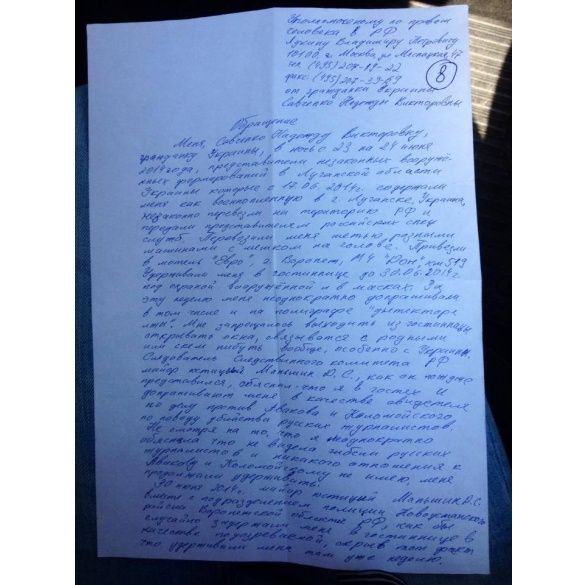 Уполномоченому по правам
человека в РФ
Лукину Владимиру Петровичу
10100 г. Москва ул. Мясницкая, 47
тел. (495) 207-19-22
факс. (495) 207-39-69
от гражданки Украины
Савченко Надежды Викторовны
8
Обращение
Меня, Савченко Надежду Викторовну,
гражданку Украины, в ночь с 23 на 24 июня
2014 года, представители незаконных вооружё-
нных формирований в Луганской области
Украины которые с 17.06.2014г. содержали
меня как военнопленную в г. Луганске, Украина,
незаконно перевезли на територию РФ и
передали представителям российских спец
служб. Перевозили меня шестью разными
машинами с мешком на голове. Привезли
в мотель "Евро" г. Воронеж, М4 "Дон" км 519
Удерживали меня в гостиннице до 30.06.2014г.
под охраной вооружённой и в масках. За
эту неделю меня неоднократно допрашивала
в том числе и на полиграфе "детекторе
лжи". Мне запрещалось выходить из гостиницы
открывать окна, связываться с родными
или с кем нибуть вообще, особенно с Украины.
Следователь Следственного комитета РФ
майор юстиции Маньшин Д.С., как он позже
представился, обяснил что я в гостях и
допрашивают меня в качестве свидетеля
по делу против Авакова и Коломойского
по поводу убийства руских журналистов.
Не смотря на то, что я неоднократно
обясняла что не видела гибели русских
журналистов и никакого отношения к
Авакову и Коломойскому не имею, меня
продолжали удерживать.
30 июня 2014г. майор юстиции Маньшин Д.С.
вместе с подразделением полиции Новоусманского
района Воронежской области РФ, как бы
случайно задержали меня в гостиннице в
качестве подозреваемой, скрыв тот факт
что удерживали меня там уже неделю.